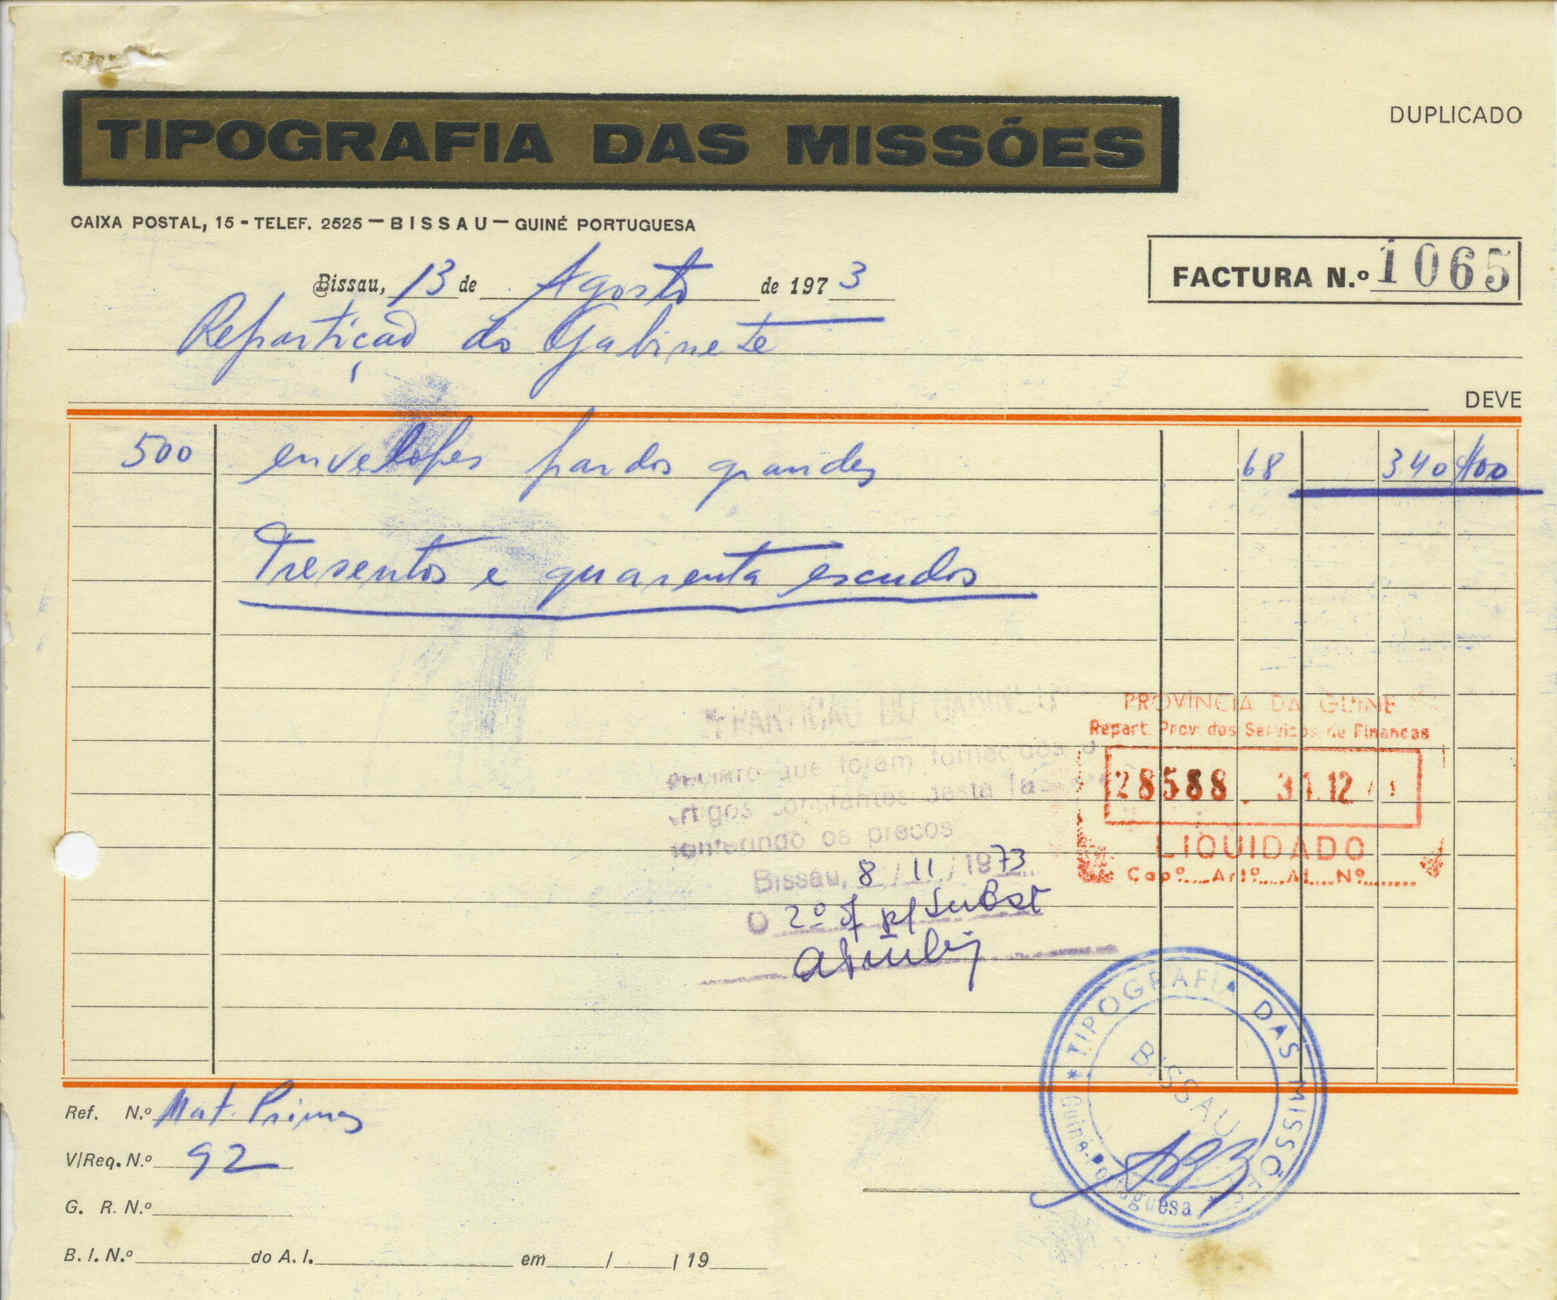 DUPLICADO
TIPOGRAFIA DAS MISSÕES
CAIXA POSTAL, 15 - TELEF. 2525 — BISSAU — GUINÉ PORTUGUESA
FACTURA N.º 1065
Bissau, 13 de Agosto de 1973
Repartição do Gabinete
DEVE
500 envelopes pardos grandes 68 340$00
Tresentos e quarenta escudos
PARTIÇÃO DO GABINETE
que foram fornecidos
artigos constantes desta fa
conferindo os preços
Bissau, 8 / 11 / 1973
O 2º
PROVÍNCIA DA GUINÉ
Repart. Prov. dos Serviços de Finanças
28588 . 31.12
LIQUIDADO
Capº.... Artº.... Al.... Nº........
* TIPOGRAFIA DAS MISSÕES *
BISSAU
Guiné-Portuguesa
Ref. N.º Mat. Primas
V/Req. N.º 92
G. R. N.º
B. I. N.º do A. I. em / / 19